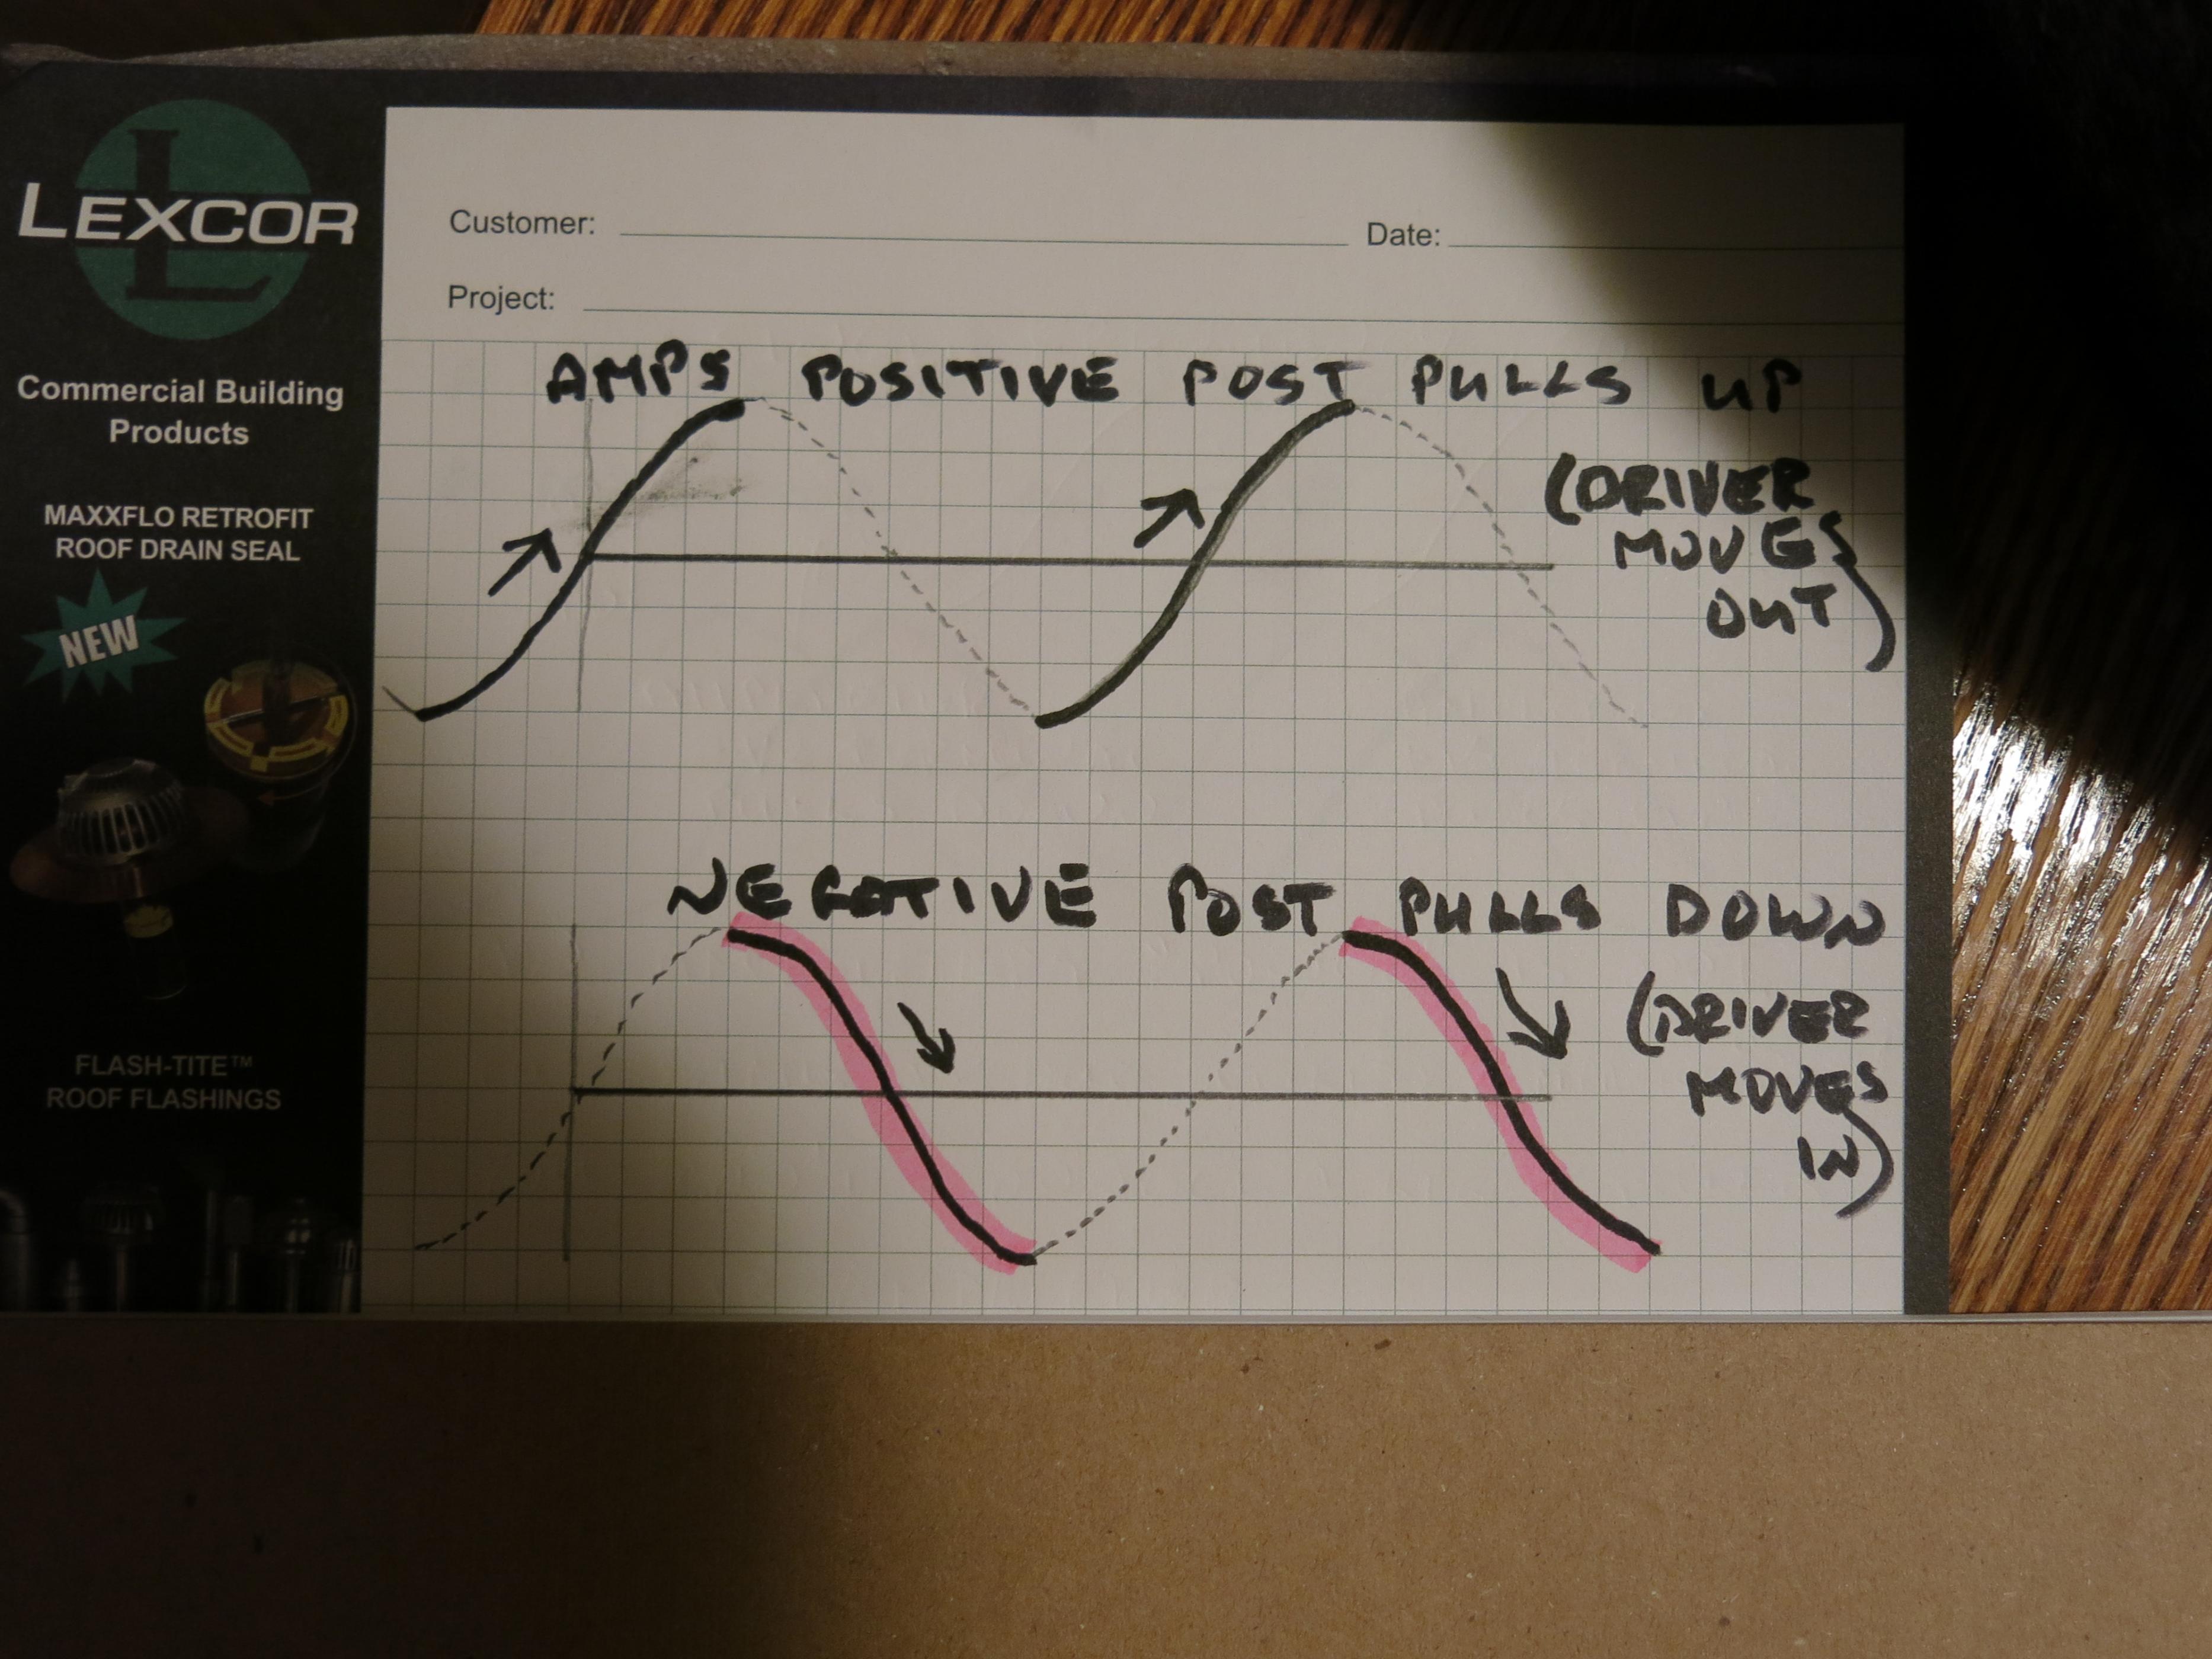 LEXCOR
Commercial Building
Products
MAXXFLO RETROFIT
ROOF DRAIN SEAL
NEW
FLASH-TITE™
ROOF FLASHINGS
Customer:
Date:
Project:
AMPS POSITIVE POST PULLS UP
(DRIVER
MOVES
OUT)
NEGATIVE POST PULLS DOWN
(DRIVER
MOVES
IN)